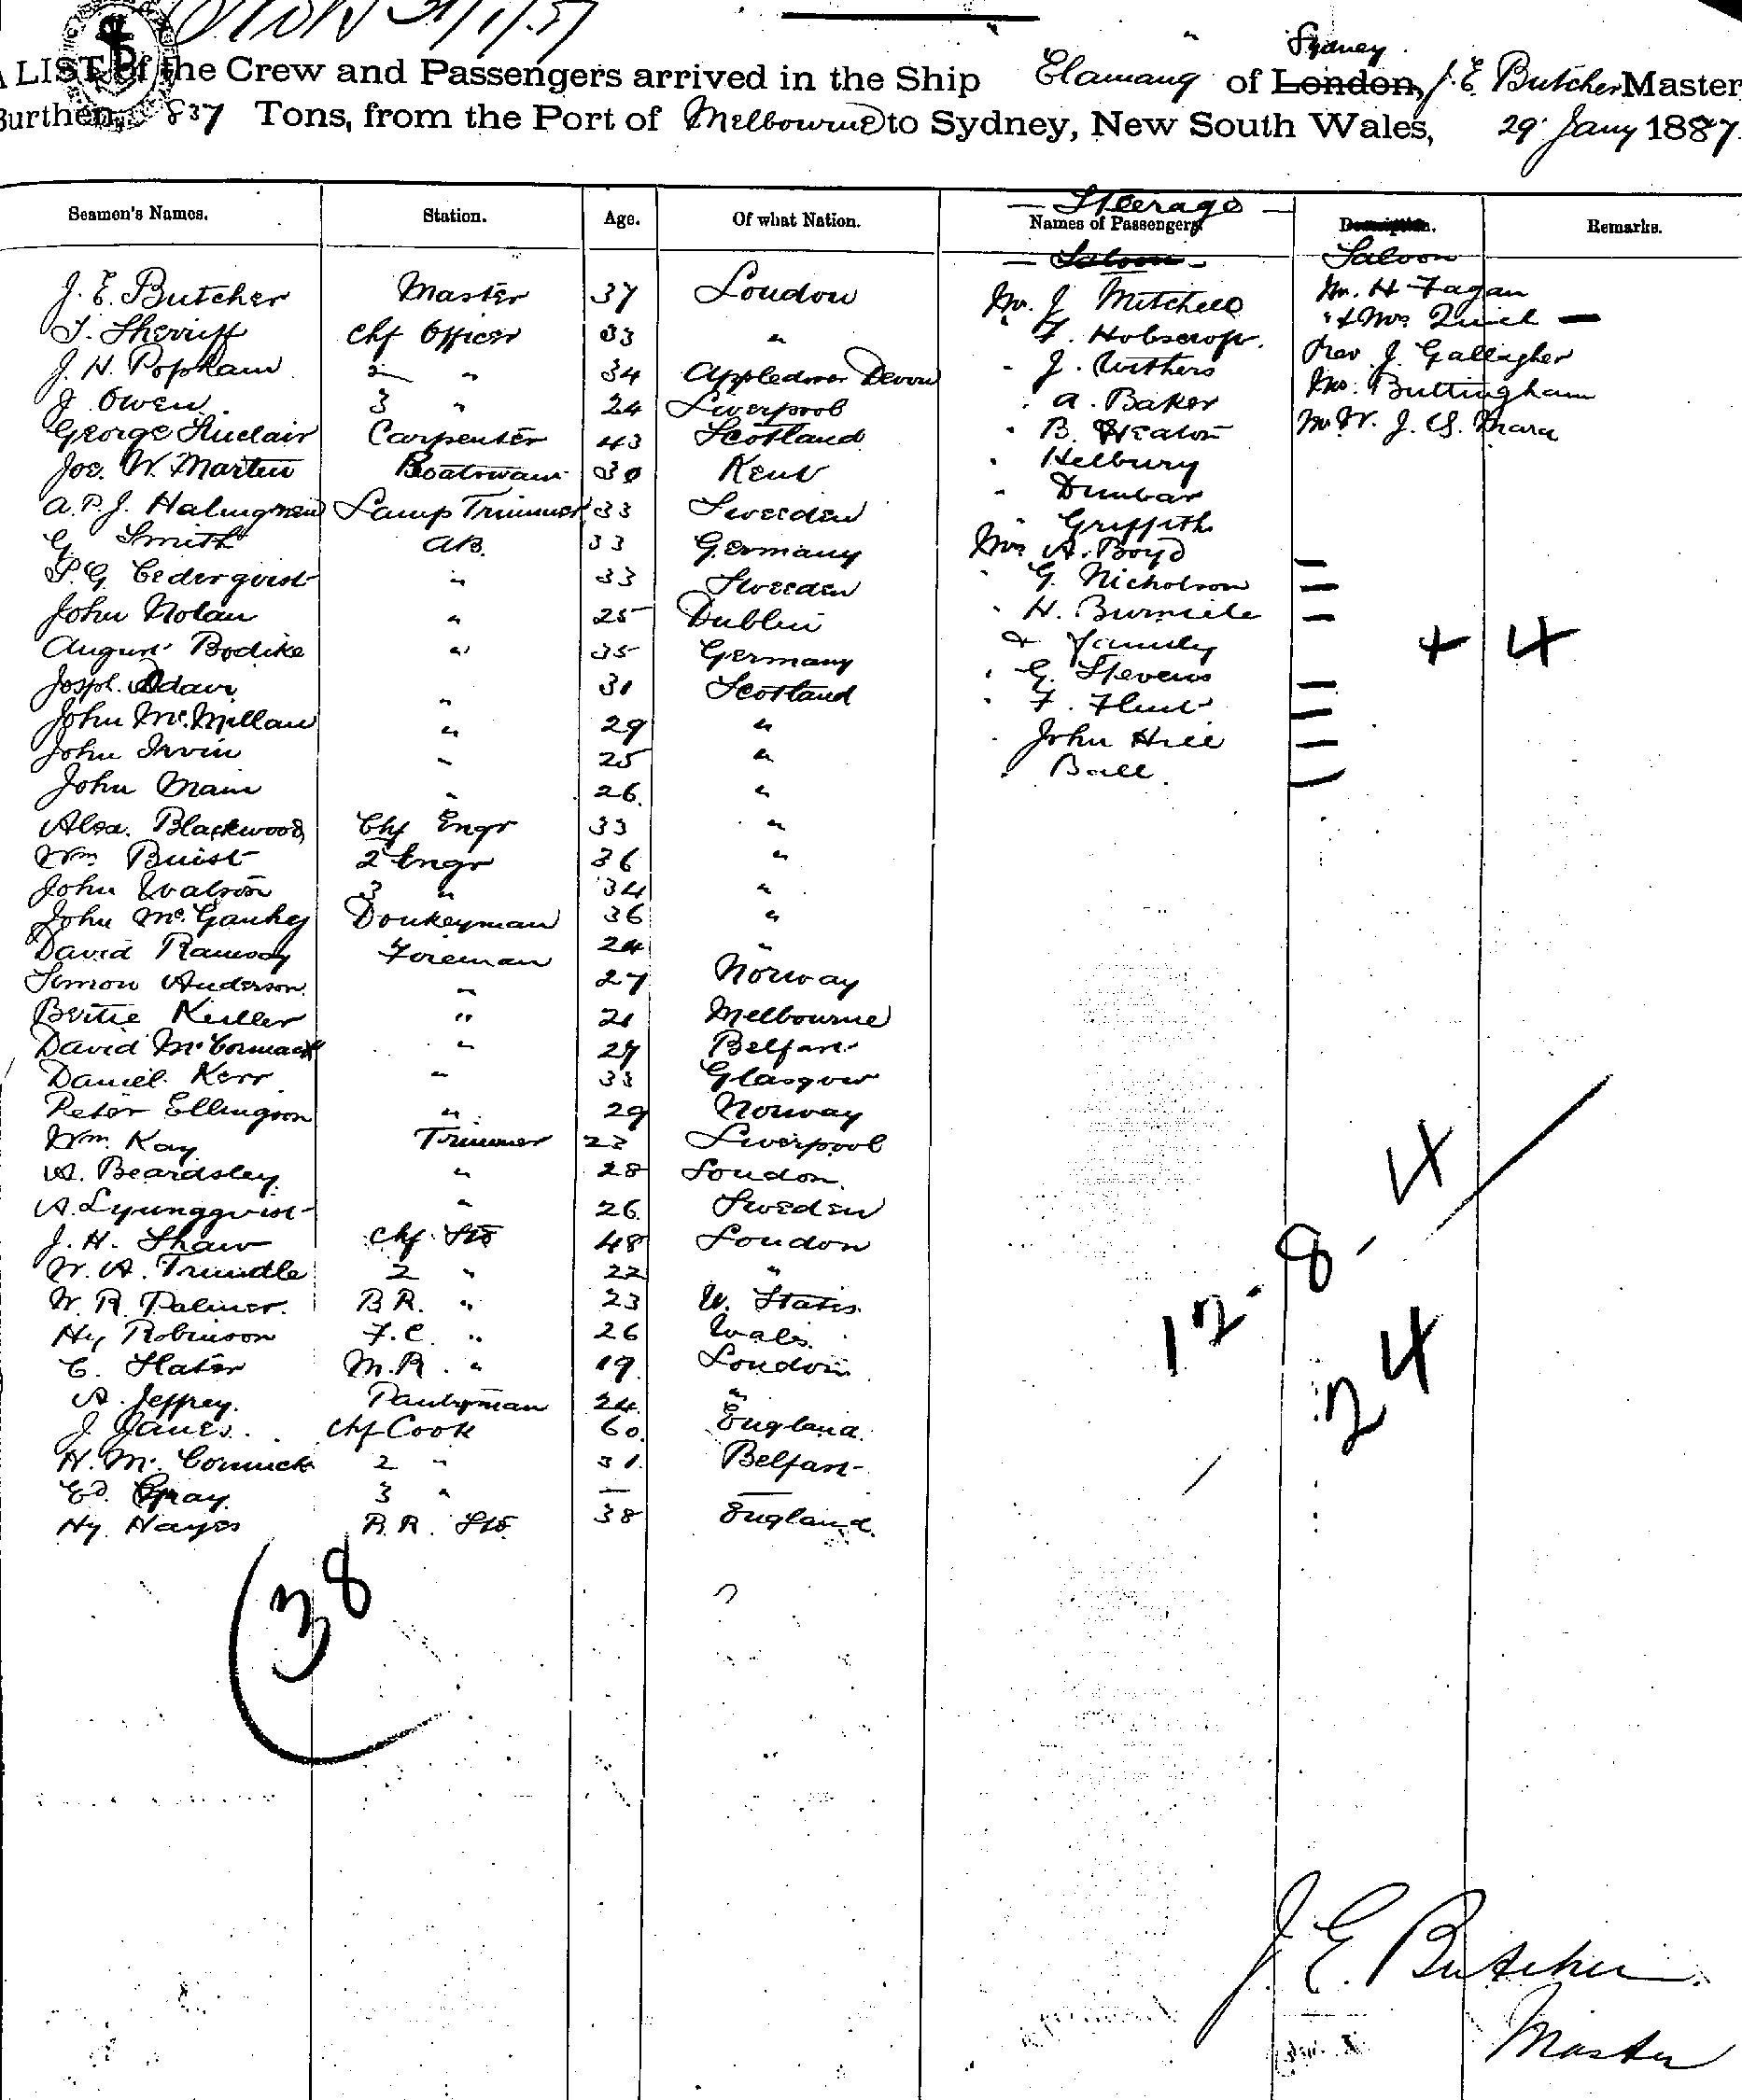 A LIST of the Crew and Passengers arrived in the Ship Elamang of London, Sydney J. E. Butcher Master
Burthen 837 Tons, from the Port of Melbourne to Sydney, New South Wales, 29 Jany 1887.
Seamen's Names. Station. Age. Of what Nation. Steerage Names of Passengers Description. Remarks.
Saloon Saloon
J. E. Butcher Master 37 London Mr. J Mitchell Mr. H Fagan
T. Sherriff Chf Officer 33 " " F. " & Mrs —
J. H. Popham 2 " 34 Appledore Devon " J. Withers Rev J. Gallagher
J. Owen 3 " 24 Liverpool " A. Baker Mr. Buttingham
George Sinclair Carpenter 43 Scotland " B. Heaton Mr W. J.
Joe. W. Martin Boatswain 30 Kent " Helbury
A. P. J. Halmgren Lamp Trimmer 33 Sweeden " Dunbar
G. Smith AB. 33 Germany " Griffith
P. G Cederqvist " 33 Sweeden Mrs A. Boyd —
John Nolan " 25 Dublin " G. Nicholson —
August Bodike " 35 Germany " H. —
Josph. Adam " 31 Scotland & Family + 4
John McMillan " 29 " " G. Stevens —
John Irvin " 25 " " F. Flint —
John Main " 26 " " John Hill —
Alex. Blackwood Chf Engr 33 " " Ball —
Wm Buist 2 Engr 36 "
John Watson 3 " 34 "
John McGauhey Donkeyman 36 "
David Ramsay Fireman 24 "
Simon Anderson " 27 Norway
Bertie Keller " 21 Melbourne
David McCormack " 27 Belfast
Daniel Kerr " 33 Glasgow
Peter Ellingson " 29 Norway
Wm Kay Trimmer 22 Liverpool
A. Beardsley " 28 London
A. Lyungqvist " 26 Sweden
J. H. Shaw Chf Std 48 London
W. A. Trundle 2 " 22 "
W. R. Palmer B R. " 23 U. States
Hy Robinson F. C. " 26 Wales
C. Slater M. R. " 19 London
A. Jeffrey Pantryman 24 "
J Janes Chf Cook 60 England
H. McCormick 2 " 31 Belfast
Ed. Gray 3 " — —
Hy. Hayes B. R. Std 38 England
12 - 8 - 4
24
38
J. E. Butcher
Master